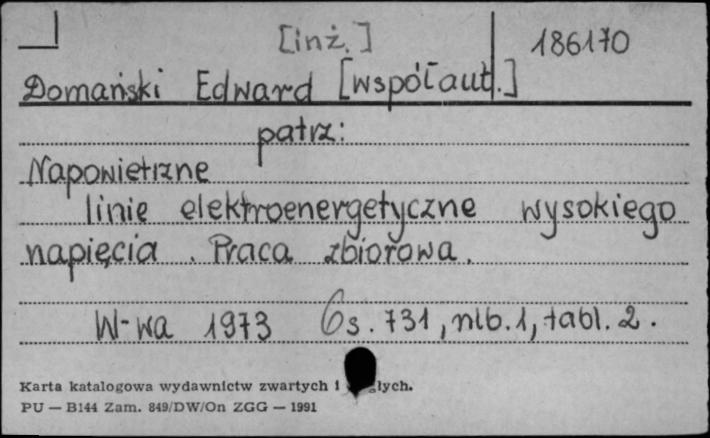 [inż.] 186170
Domański Edward [współaut.]
patrz:
Napowietrzne
linie elektroenergetyczne wysokiego
napięcia. Praca zbiorowa.
W-wa 1973 s. 731, nlb. 1, tabl. 2.
Karta katalogowa wydawnictw zwartych i
PU — B144 Zam. 849/DW/On ZGG — 1991